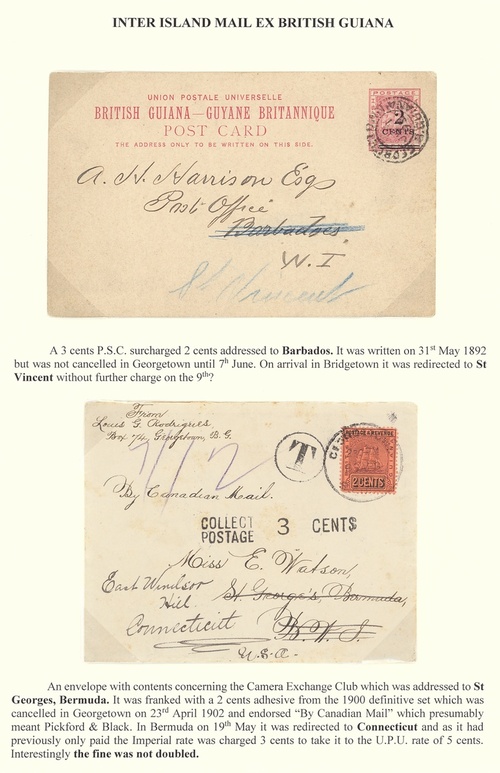 INTER ISLAND MAIL EX BRITISH GUIANA
UNION POSTALE UNIVERSELLE
BRITISH GUIANA—GUYANE BRITANNIQUE
POST CARD
THE ADDRESS ONLY TO BE WRITTEN ON THIS SIDE.
POSTAGE
2
CENTS
A. H. Harrison Esq
Post Office
Barbadoes
W. I
St Vincent
A 3 cents P.S.C. surcharged 2 cents addressed to Barbados. It was written on 31st May 1892
but was not cancelled in Georgetown until 7h June. On arrival in Bridgetown it was redirected to St
Vincent without further charge on the 9th?
From
Louis G. Rodrigues
Box 74, Georgetown, B. G.
T
POSTAGE & REVENUE
2 CENTS
By Canadian Mail.
COLLECT
POSTAGE 3 CENTS
Miss E. Watson,
East Windsor
Hill.
St. George's, Bermuda,
Connecticut
B. W. I.
U.S.A.
An envelope with contents concerning the Camera Exchange Club which was addressed to St
Georges, Bermuda. It was franked with a 2 cents adhesive from the 1900 definitive set which was
cancelled in Georgetown on 23rd April 1902 and endorsed “By Canadian Mail” which presumably
meant Pickford & Black. In Bermuda on 19th May it was redirected to Connecticut and as it had
previously only paid the Imperial rate was charged 3 cents to take it to the U.P.U. rate of 5 cents.
Interestingly the fine was not doubled.